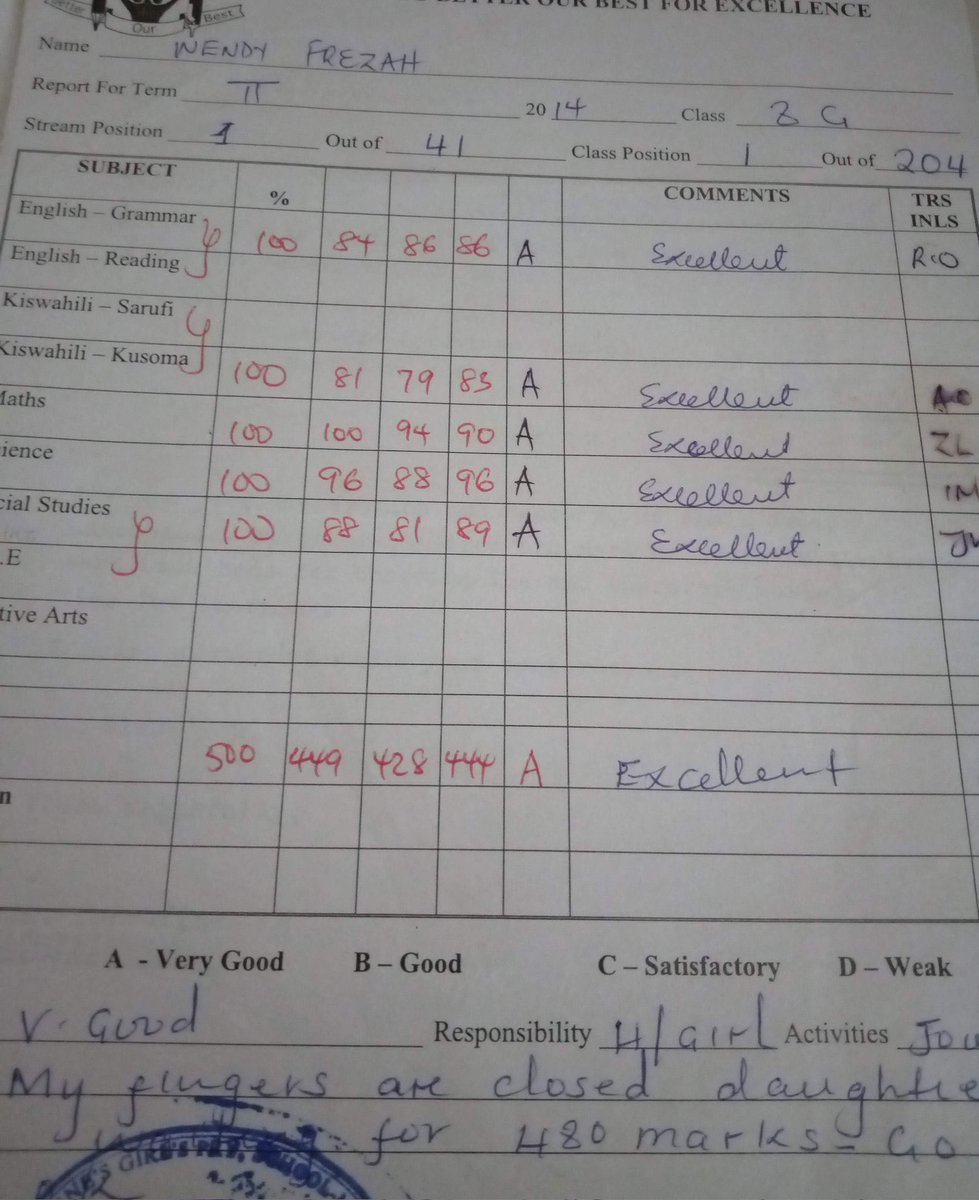 Our Best
BETTER OUR BEST FOR EXCELLENCE
Name WENDY FREZAH
Report For Term II 2014 Class 8 G
Stream Position 1 Out of 41 Class Position 1 Out of 204
SUBJECT % COMMENTS TRS INLS
English – Grammar
English – Reading 100 84 86 86 A Excellent R.O
Kiswahili – Sarufi
Kiswahili – Kusoma 100 81 79 83 A Excellent
Maths 100 100 94 90 A Excellent ZL
ience 100 96 88 96 A Excellent IM
cial Studies 100 88 81 89 A Excellent
.E
tive Arts
500 449 428 444 A Excellent
n
A - Very Good B – Good C – Satisfactory D – Weak
V. Good Responsibility H/GIRL Activities Jou
My fingers are closed daughte
for 480 marks = Go
GIRLS